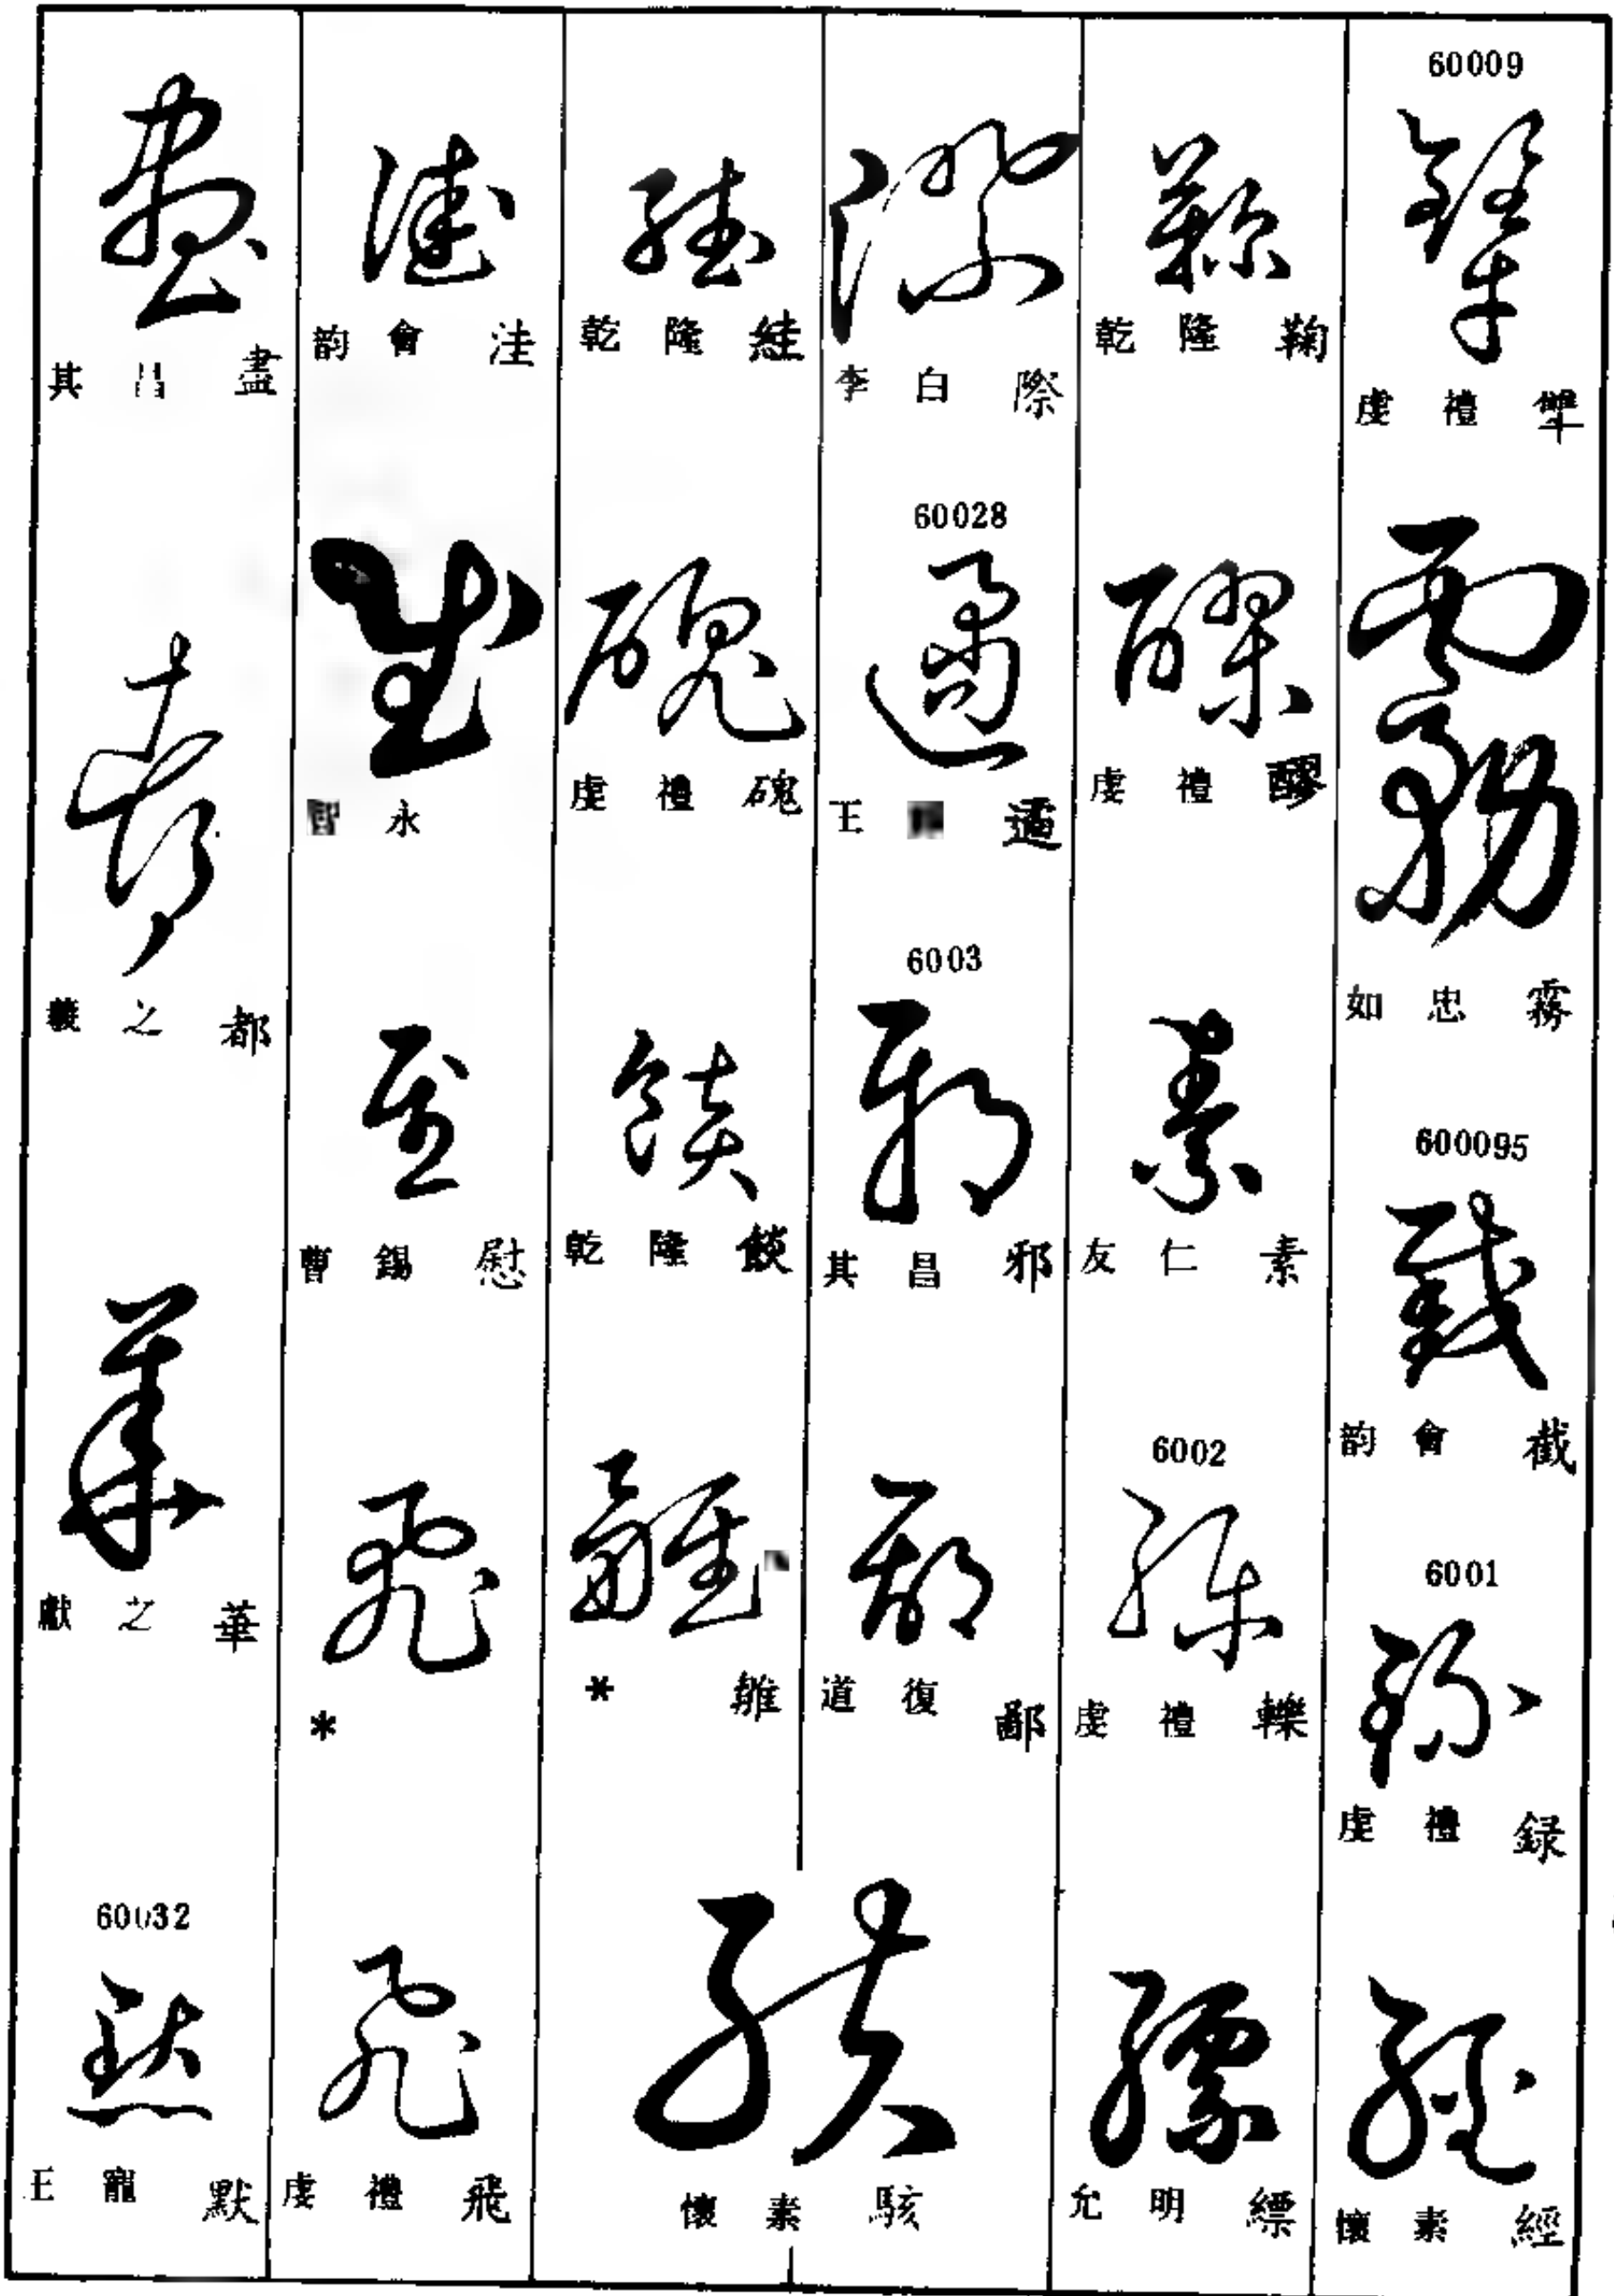 60009
虔 禮 犨
如 忠 霧
600095
韵 會 截
6001
虔 禮 録
懷 素 經
乾 隆 鞠
虔 禮 醪
友 仁 素
6002
虔 禮 轢
允 明 縹
李 白 際
60028
王 遹
6003
其 昌 邪
道 復 鄙
懷 素 駭
乾 隆 絓
虔 禮 磈
乾 隆 餤
*
韵 會 洼
智 永
曹 錫 慰
*
虔 禮 飛
其 昌 盡
羲 之 都
獻 之 華
60032
王 寵 默